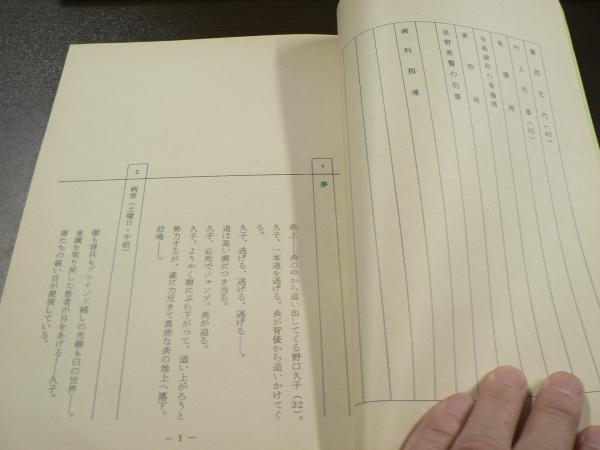 藤田光代(46)
村上刑事(30)
看護婦
歯科の看護婦
長野県警の刑事
歯科指導
1 夢
炎上――炎の中から這い出してくる野口久子(32)。
久子、一本道を逃げる。炎が背後から追いかけてく
る。
久子、逃げる、逃げる、逃げる……。
道は高い塀につき当る。
久子、必死でジャンプ。炎が迫る。
久子、ようやく塀にぶら下がって、這い上がろうと
努力するが、遂に力尽きて真赤な炎の地上へ落下。
悲鳴――。
2 病室(土曜日・午前)
壁も寝具もブラインド越しの光線も白の世界――。
意識を取り戻した患者が目をあける――久子。
男たちの鋭い目が凝視している。
— 1 —